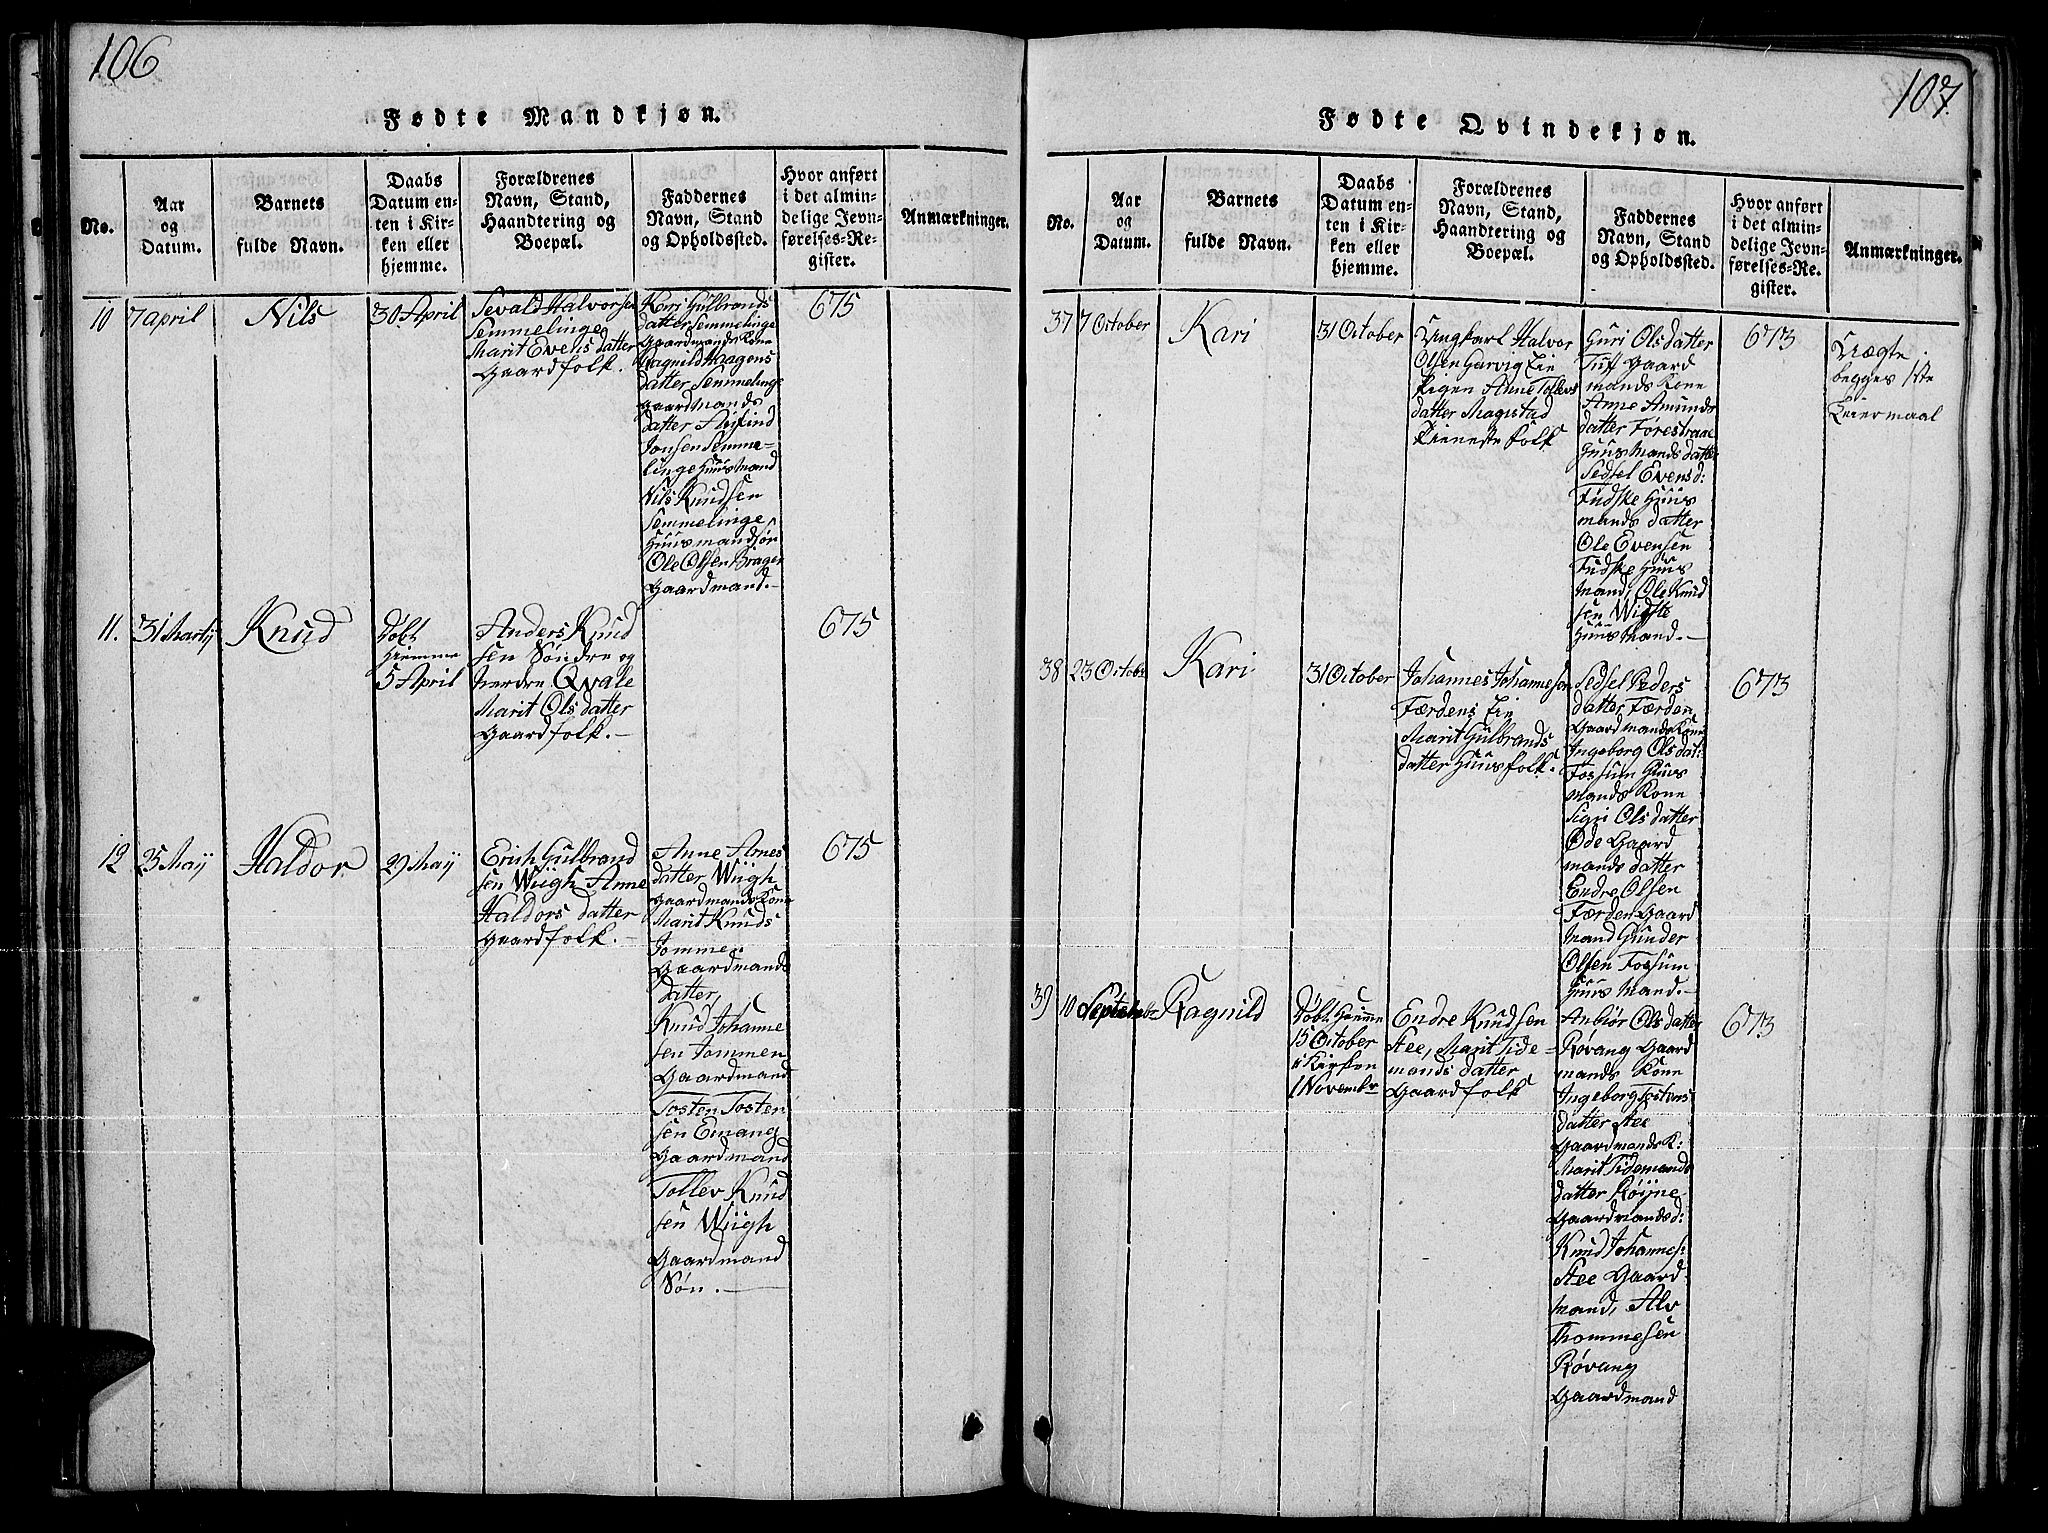 106
Fødte Mandkjøn.
No.
Aar
og
Datum.
Barnets
fulde Navn.
Daabs
Datum en-
ten i Kir-
ken eller
hjemme.
Forældrenes
Navn, Stand,
Haandtering og
Boepæl.
Faddernes
Navn, Stand
og Opholdssted.
Hvor anført
i det almin-
delige Jevn-
førelses-Re-
gister.
Anmærkninger.
10
7 april
Nils
30 April
Sevald Halvorsen
Semmelinge
Marit Evens datter
Gaardfolk.
Kari Gulbrands
datter Semmelinge
Gaardmands Kone
Ragnild Haagens
datter Semmelinge
Gaardmands
datter
Jonsen Semme-
linge Huusmand
Nils Knudsen
Semmelinge
Huusmandsøn
Ole Olsen Brager
Gaardmand.-
675
11.
31 Martij
Knud
Döbt
Hiemme
5 April
Anders Knud
sen Söndre og
nerdre Qvale
Marit Olsdatter
Gaardfolk.-
675
12
25 Maij
Haldor
29 Maij
Erich Gulbrand
sen Wiigh Anne
Haldors datter
Gaardfolk.-
Anne Arnes
datter Wiigh
Gaardmands Kone
Marit Knuds
Jommen
Gaardmands
datter,
Knud Johanne
sen Jommen
Gaardmand
Tosten Tosten
sen Emang
Gaardmand
Tollev Knud
sen Wiigh
Gaardmand
Søn.-
675
107.
Fødte Qvindekjøn.
No.
Aar
og
Datum.
Barnets
fulde Navn.
Daabs
Datum en-
ten i Kir-
ken eller
hjemme.
Forældrenes
Navn, Stand,
Haandtering og
Boepæl.
Faddernes
Navn, Stand
og Opholdssted.
Hvor anført
i det almin-
delige Jevn-
førelses-Re-
gister.
Anmærkninger.
37
7 October
Kari
31 October
Ungkarl Halvor
Olsen Garvig Eie
Pigen Anne Tollevs
datter Magistad
Tieneste folk
Guri Olsdatter
Tuff Gaard
mands Kone
Anne Amunds
datter
Huusmands datter
Sedsel Evens d:
Fudske Huus
mands datter
Ole Evensen
Fudske Huus
mand, Ole Knud
sen
Huusmand.-
673
Uægte
begges 1ste
Leiermaal
38
23 Octobr
Kari
31 October
Johannes Johannesen
Færdens Eie
Marit Gulbrands
datter Huusfolk.
Sedsel Peders
datter Færden
Gaardmands Kone
Ingeborg Olsdat:
Fossum Huus
mands Kone
Sigri Olsdatter
Øde Gaard
mands datter
Endre Olsen
Færden Gaard
mand Gunder
Olsen Fossum
Huusmand.-
673
39
10 Septembr
Ragnild
Döbt Hiemme
15 October
i Kirken
1 Novembr
Endre Knudsen
Stee, Marit Tide-
mands datter
Gaardfolk
Anbiör Olsdatter
Rövang Gaard
mands Kone
Ingeborg Tostens
datter Stee
Gaardmands K:
Marit Tidemands
datter Röijne
Gaardmands d:
Knud Johannes:
Stee Gaard-
mand, Alv
Thommesen
Rövang
Gaardmand
673